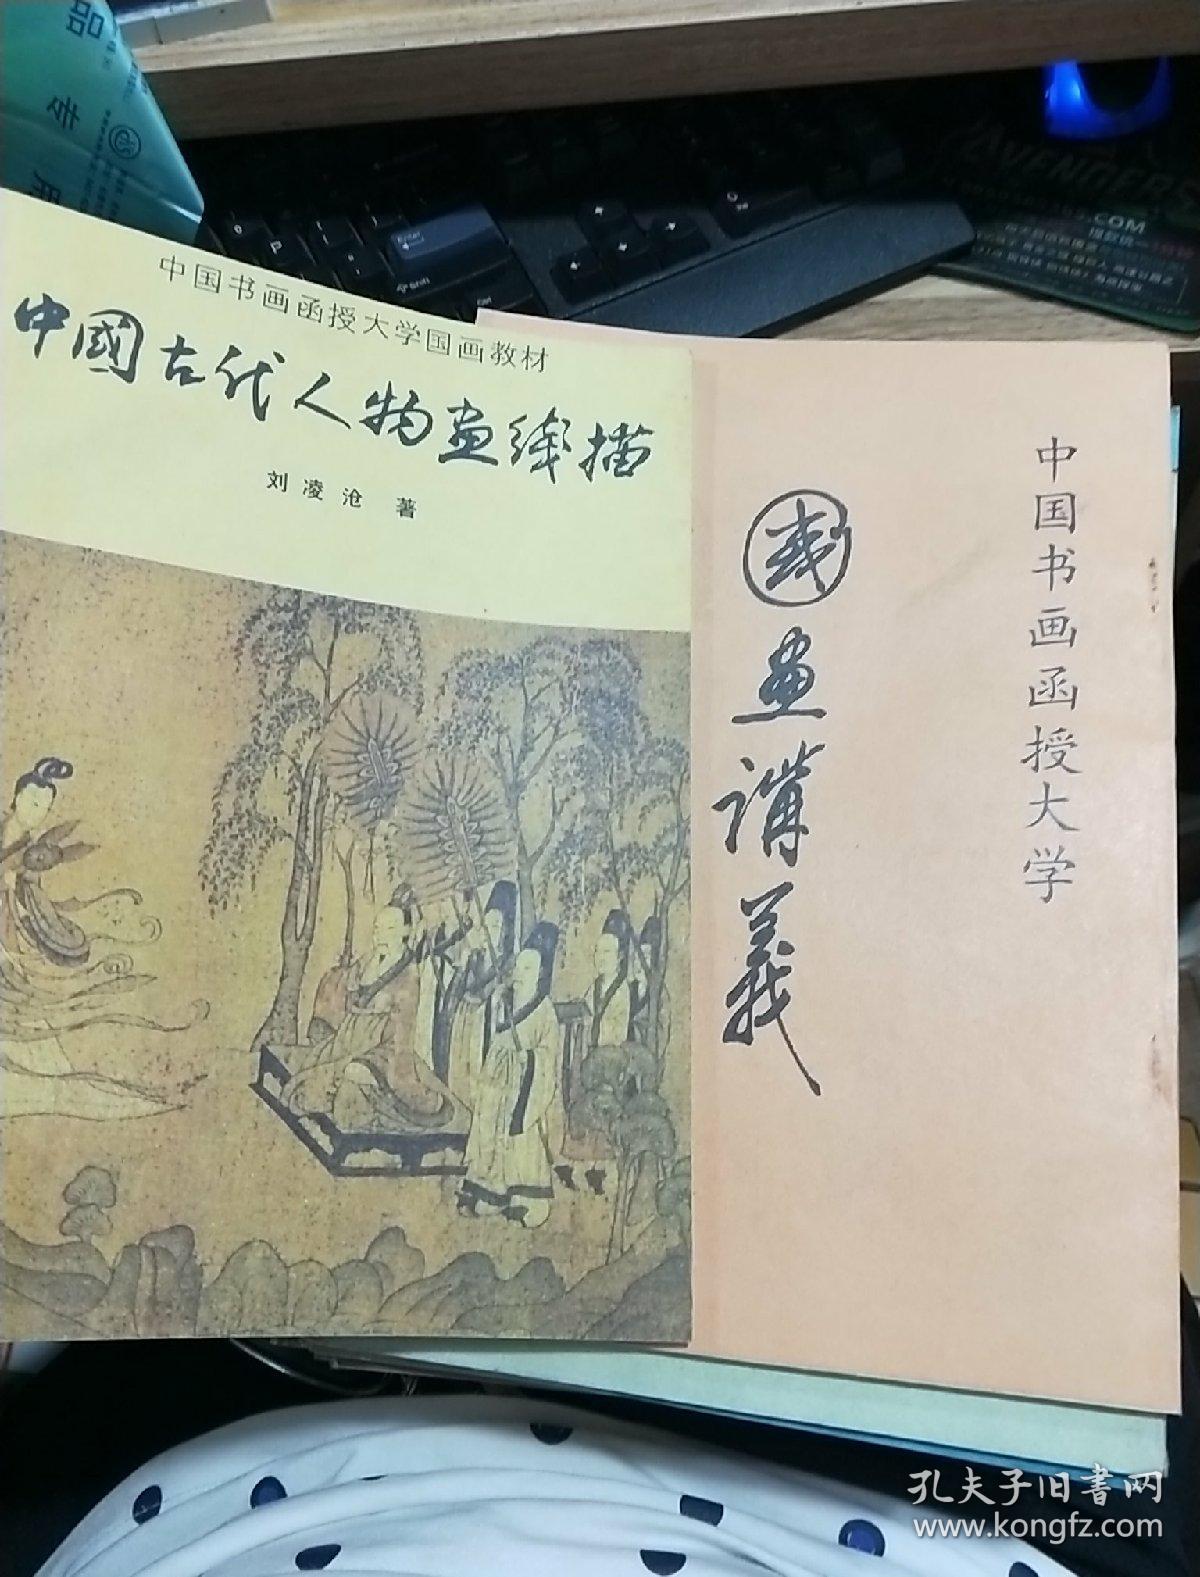 品专用
中国书画函授大学国画教材
中國古代人物画线描
刘凌沧 著
中国书画函授大学
國画講義
Enter
Shift
AVENGERS
.COM
孔夫子旧書网
www.kongfz.com